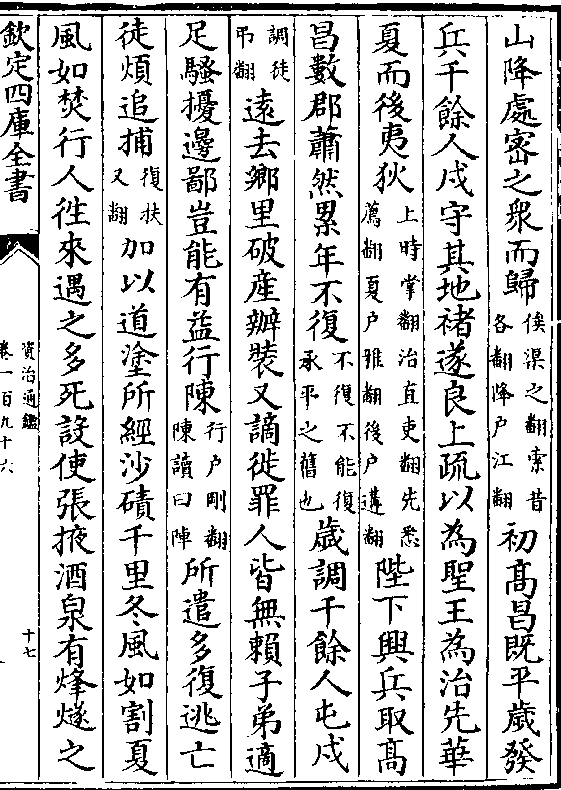 山降處密之衆而歸俟渠之翻索昔各翻降户江翻初髙昌既平歲發
兵千餘人戍守其地褚遂良上疏以為聖王為治先華
夏而後夷狄上時掌翻治直吏翻先悉薦翻夏户雅翻後户遘翻陛下興兵取髙
昌數郡蕭然累年不復不復不能復承平之舊也歲調千餘人屯戍
調徒弔翻遠去鄉里破産辦裝又謫徙罪人皆無賴子弟適
足騷擾邊鄙豈能有益行陳行户剛翻陳讀曰陣所遣多復逃亡
徒煩追捕復扶又翻加以道塗所經沙磧千里冬風如割夏
風如焚行人徃來遇之多死設使張掖酒泉有烽燧之
欽定四庫全書
資治通鑑
卷一百九十六
十七